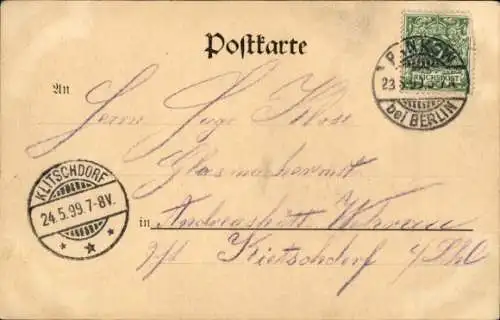 Postkarte
PANKOW
23.5.99
bei BERLIN
REICHSPOST
An
Herrn Hugo Klose
Glasmachermstr
KLITSCHDORF
24.5.99.7-8V.
in Andreashütte Wehrau
Klitschdorf i/Schl